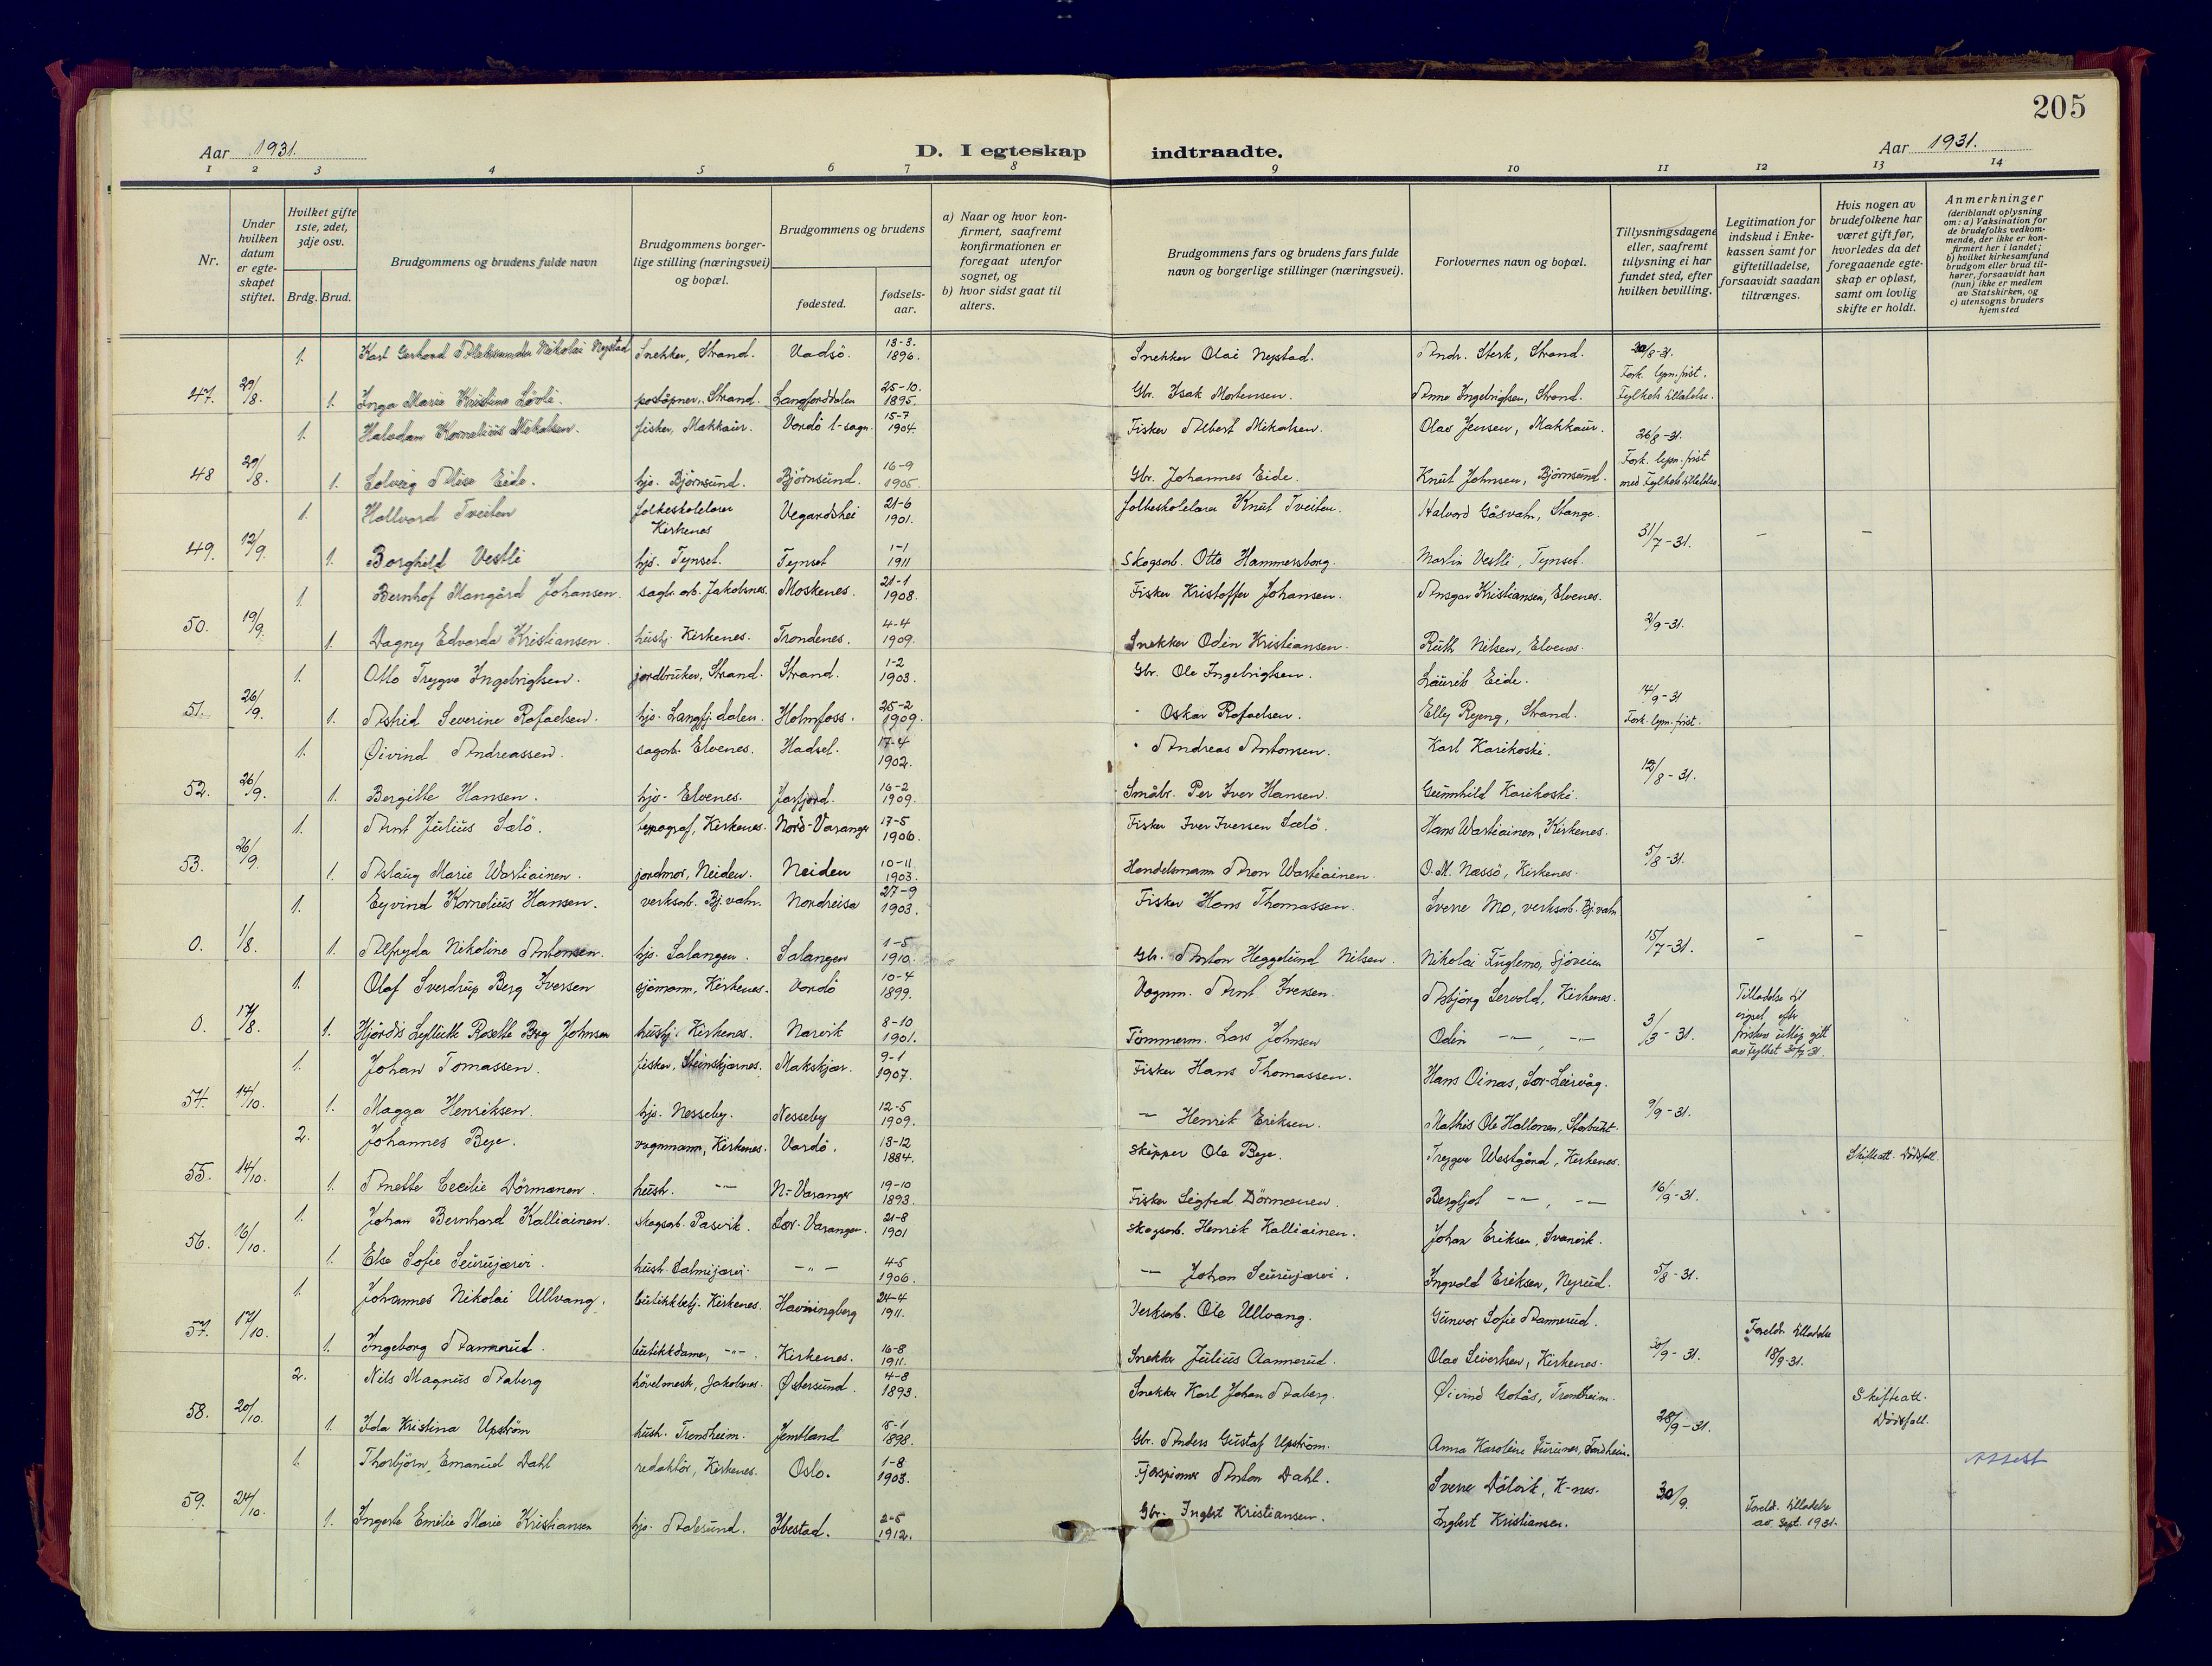 205
Aar 1931.
D. I egteskap indtraadte.
Aar 1931.
1 2 3 4 5 6 7 8 9 10 11 12 13 14
Nr.
Under hvilken datum er egteskapet stiftet.
Hvilket gifte 1ste, 2det, 3dje osv.
Brdg. Brud.
Brudgommens og brudens fulde navn
Brudgommens borgerlige stilling (næringsvei) og bopæl.
Brudgommens og brudens
fødested.
fødselsaar.
a) Naar og hvor konfirmert, saafremt konfirmationen er foregaat utenfor sognet, og
b) hvor sidst gaat til alters.
Brudgommens fars og brudens fars fulde navn og borgerlige stillinger (næringsvei).
Forlovernes navn og bopæl.
Tillysningsdagene eller, saafremt tillysning ei har fundet sted, efter hvilken bevilling.
Legitimation for indskud i Enkekassen samt for giftetilladelse, forsaavidt saadan tiltrænges.
Hvis nogen av brudefolkene har været gift før, hvorledes da det foregaaende egteskap er opløst, samt om lovlig skifte er holdt.
Anmerkninger
(deriblandt oplysning om: a) Vaksination for de brudefolks vedkommende, der ikke er konfirmert her i landet; b) hvilket kirkesamfund brudgom eller brud tilhører, forsaavidt han (hun) ikke er medlem av Statskirken, og c) utensogns bruders hjemsted
1. Karl Gerhard Aleksander Nikolai Nystad Snekker, Strand. Vadsö. 13-3. 1896. Snekker Olai Nystad. Andr. Sterk, Strand.
47. 29/8. 1. Inga Marie Kristine Lövli. poståpner, Strand. Langfjorddalen 25-10. 1895. Gbr. Isak Mortensen. Anna Ingebrigtsen, Strand. Fork. lysn. frist. Fylkets tillatelse.
1. Halvdan Kornelius Mikalsen. fisker, Makkaur. Vardö l-sogn. 15-7 1904. Fisker Albert Mikalsen. Olav Jensen, Makkaur. 26/8-31.
48 29/8. 1. Solveig Alise Eide. hjs. Björnsund. Björnsund. 16-9 1905. Gbr. Johannes Eide. Knut Johnsen, Björnsund. Fork. lysn. frist med Fylkets tillatelse.
1. Hallvard Tveiten folkeskolelærer Kirkenes Vegardshei 21-6 1901. Folkeskolelærer Knut Tveiten. Halvard Gåsvatn, Stange.
49. 12/9. 1. Borghild Vestli hjs. Tynset. Tynset 1-1 1911 Skogsarb. Otto Hammersborg. Martin Vestli, Tynset. 31/7-31. - -
1. Bernhof Mangård Johansen. sagbr. arb. Jakobsnes. Moskenes. 21-1 1908. Fisker Kristoffer Johansen. Ansgar Kristiansen, Elvenes.
50. 19/9. 1. Dagny Edvarda Kristiansen. hushj. Kirkenes. Trondenes. 4-4 1909. Snekker Odin Kristiansen. Ruth Nilsen, Elvenes. 2/9-31.
1. Otto Trygve Ingebrigtsen. jordbruker, Strand. Strand. 1-2 1903. Gbr. Ole Ingebrigtsen. Laurits Eide.
51. 26/9. 1. Astrid Severine Rafaelsen. hjs. Langfj.dalen. Holmfoss. 25-2 1909. " Oskar Rafaelsen. Elly Ryeng, Strand. 14/9-31 Fork. lysn. frist.
1. Øivind Andreassen. sagarb. Elvenes. Hadsel. 17-4 1902. " Andreas Antonsen. Karl Karikoski.
52. 26/9. 1. Bergitte Hansen. hjs. Elvenes. Jarfjord. 16-2 1909. Småbr. Per Iver Hansen. Gunnhild Karikoski. 12/8-31.
1. Arnt Julius Sælö. typograf, Kirkenes. Nord-Varanger 17-5 1906. Fisker Iver Iversen Sælö. Hans Wartiainen, Kirkenes.
53. 26/9. 1. Aslaug Marie Wartiainen. jordmor, Neiden. Neiden 10-11 1903. Handelsmann Aron Wartiainen. O. M. Næssö, Kirkenes. 5/8-31.
1. Eyvind Kornelius Hansen. verksarb. Bj.vatn. Nordreisa 27-9 1903. Fisker Hans Thomassen. Sverre Mo, verksarb. Bj.vatn
0. 1/8. 1. Alfryda Nikoline Antonsen. hjs. Salangen. Salangen 1-5 1910. Gbr. Anton Heggelund Nilsen. Nikolai Fuglemo, Sjöveien 15/7-31. - - -
1. Olaf Sverdrup Berg Iversen sjömann, Kirkenes. Vardö 10-4 1899. Vognm. Arnt Iversen. Asbjörg Servold, Kirkenes.
0. 17/8. 1. Hjördis Rosette Berg Johnsen hushj. Kirkenes. Narvik 8-10 1901. Tömmerm. Lars Johnsen Odin -"-, -"- 3/3-31. Tilladelse til vigsel efter fristens utlöp gitt av Fylket
1. Johan Tomassen. fisker, Steinskjærnes. Makskjær. 9-1 1907. Fisker Hans Thomassen. Hans Oinas, Sör-Leirvåg.
54. 14/10. 1. Magga Henriksen. hjs. Nesseby. Nesseby 12-5 1909. -"- Henrik Eriksen. Mathis Ole Hallonen, Storbukt. 9/9-31.
2. Johannes Beje. vognmann, Kirkenes. Vardö. 13-12 1884. Skipper Ole Beje. Trygve Westgård, Kirkenes. Skifteatt. Dödsfall.
55. 14/10. 1. Anette Cecilie Dörmænen. hush. -"- N.-Varanger 19-10 1893. Fisker Sigfred Dörmænen. Bergljot -"-, -"- 16/9-31.
1. Johan Bernhard Kalliainen. skogsarb. Pasvik. Sör-Varanger. 21-8 1901 Skogsarb. Henrik Kalliainen. Johan Eriksen, Svanvik.
56. 16/10. 1. Else Sofie Seurujærvi. hush. Salmijærvi. -"- 4-5 1906. -"- Johan Seurujærvi. Ingvald Eriksen, Nyrud. 5/8-31.
1. Johannes Nikolai Ullvang. butikkbetj. Kirkenes. Havningberg 24-4 1911. Verksarb. Ole Ullvang. Gunvor Sofie Aannerud.
57. 17/10. 1. Ingeborg Aannerud. butikkdame, -"-. Kirkenes. 16-8 1911. Snekker Julius Aannerud. Olav Sivertsen, Kirkenes. 30/9-31. Foreldr. tilladelse 18/9-31.
2. Nils Magnus Aaberg hövelmest, Jakobsnes. Østersund. 4-8 1893. Snekker Karl Johan Aaberg. Øivind Gotås, Trondheim. Skifteatt. Dödsfall.
58. 20/10. 1. Ida Kristina Upström hush. Trondheim. Jemtland 15-1 1898. Gbr. Anders Gustaf Upström. Anna Karoline Furunes, Trondheim. 28/9-31.
1. Thorbjörn Emanuel Dahl redaktör, Kirkenes. Oslo. 1-8 1903. Anton Dahl. Sverre Dölvik, K-nes. Attest
59. 24/10. 1. Ingerte Emilie Marie Kristiansen hjs. Aalesund. Ibestad. 2-5 1912. Gbr. Ingbert Kristiansen. Ingbert Kristiansen. 30/9. Foreldr. tilladelse av Sept. 1931.